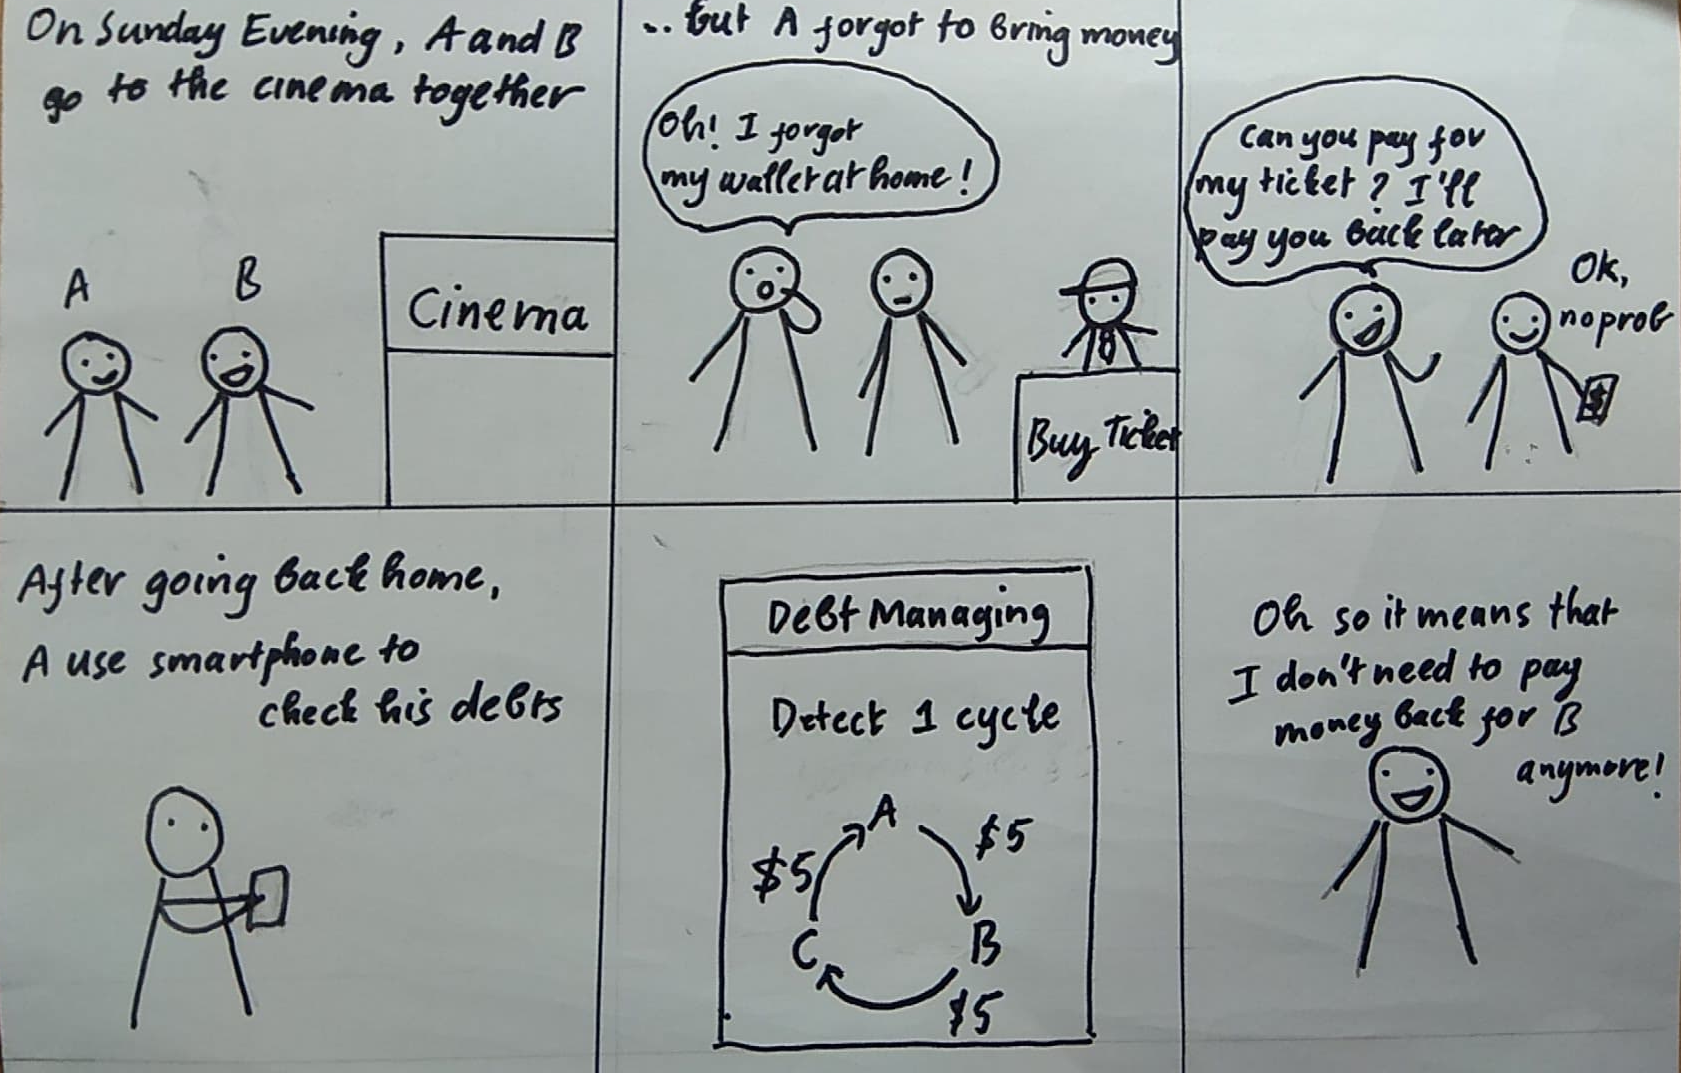 On Sunday Evening, A and B
go to the cinema together
A
B
Cinema
... but A forgot to bring money
Oh! I forgot
my wallet at home!
Buy Ticket
Can you pay for
my ticket? I'll
pay you back later
Ok,
no prob
$
After going back home,
A use smartphone to
check his debts
Debt Managing
Detect 1 cycle
A
$5
$5
C
B
$5
Oh so it means that
I don't need to pay
money back for B
anymore!